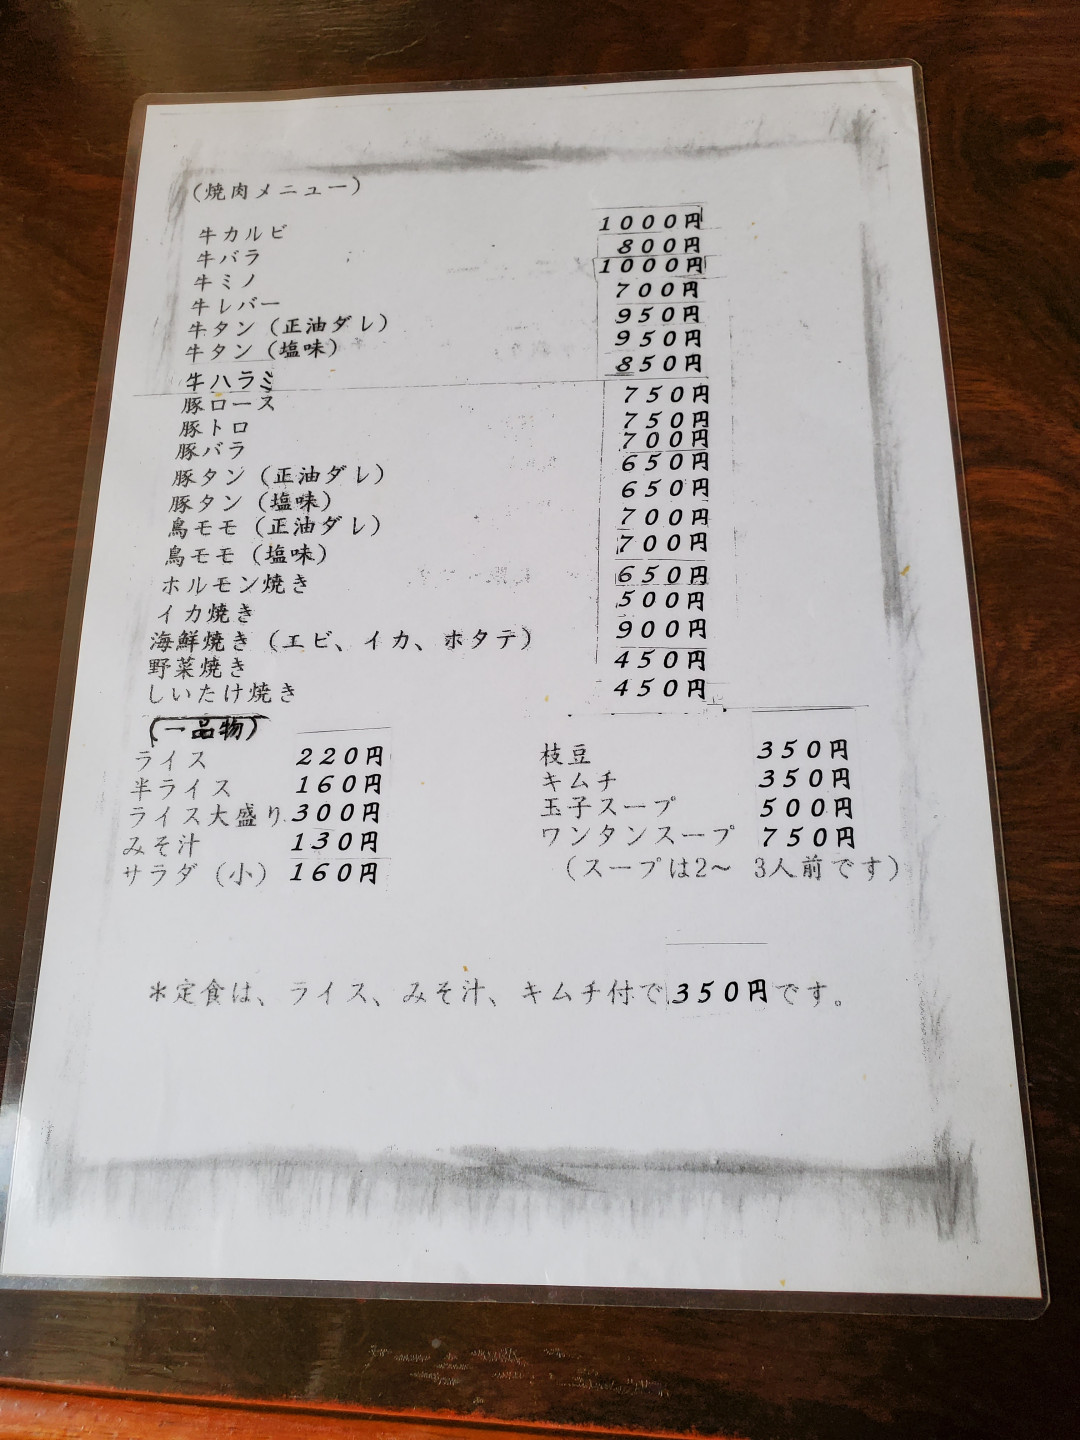 （焼肉メニュー）
牛カルビ 1000円
牛バラ 800円
牛ミノ 1000円
牛レバー 700円
牛タン（正油ダレ） 950円
牛タン（塩味） 950円
牛ハラミ 850円
豚ロース 750円
豚トロ 750円
豚バラ 700円
豚タン（正油ダレ） 650円
豚タン（塩味） 650円
鳥モモ（正油ダレ） 700円
鳥モモ（塩味） 700円
ホルモン焼き 650円
イカ焼き 500円
海鮮焼き（エビ、イカ、ホタテ） 900円
野菜焼き 450円
しいたけ焼き 450円
（一品物）
ライス 220円
半ライス 160円
ライス大盛り 300円
みそ汁 130円
サラダ（小） 160円
枝豆 350円
キムチ 350円
玉子スープ 500円
ワンタンスープ 750円
（スープは2～ 3人前です）
＊定食は、ライス、みそ汁、キムチ付で350円です。